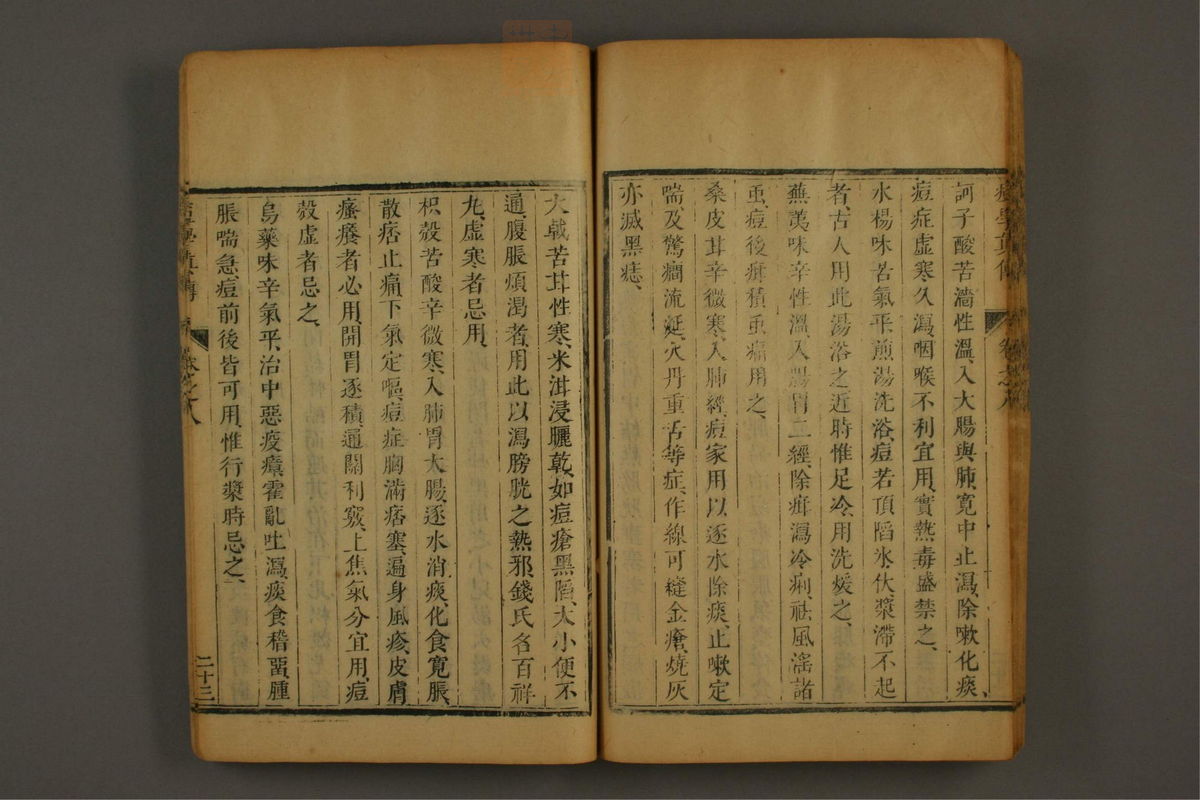 訶子酸苦濇性溫、入大腸與肺、寬中止瀉、除嗽化痰、
痘症虛寒久瀉、咽喉不利宜用、實熱毒盛禁之、
水楊味苦氣平、煎湯洗浴、痘若頂陷、水伏漿滯不起
者、古人用此湯浴之、近時惟足冷、用洗煖之、
蕪荑味辛性溫、入腸胃二經、除癬瀉冷痢、祛風淫諸
虫、痘後癖積虫痛用之、
桑皮甘辛微寒、入肺經、痘家用以逐水除痰、止嗽定
喘、及驚癇流涎、火丹重舌等症、作線可縫金瘡、燒灰
亦滅黑痣、
大戟苦甘性寒、米泔浸曬乾、如痘瘡黑陷、大小便不
通、腹脹煩渴者、用此以瀉膀胱之熱邪、錢氏名百祥
丸、虛寒者忌用、
枳殼苦酸辛微寒、入肺胃大腸、逐水消痰、化食寬脹、
散痞止痛、下氣定嘔、痘症胸滿痞塞、遍身風疹、皮膚
瘙癢者必用、開胃逐積、通關利竅、上焦氣分宜用、痘
殼虛者忌之、
烏藥味辛氣平、治中惡疫瘴、霍亂吐瀉、痰食稽留、腫
脹喘急、痘前後皆可用、惟行漿時忌之、
卷之八
二十三